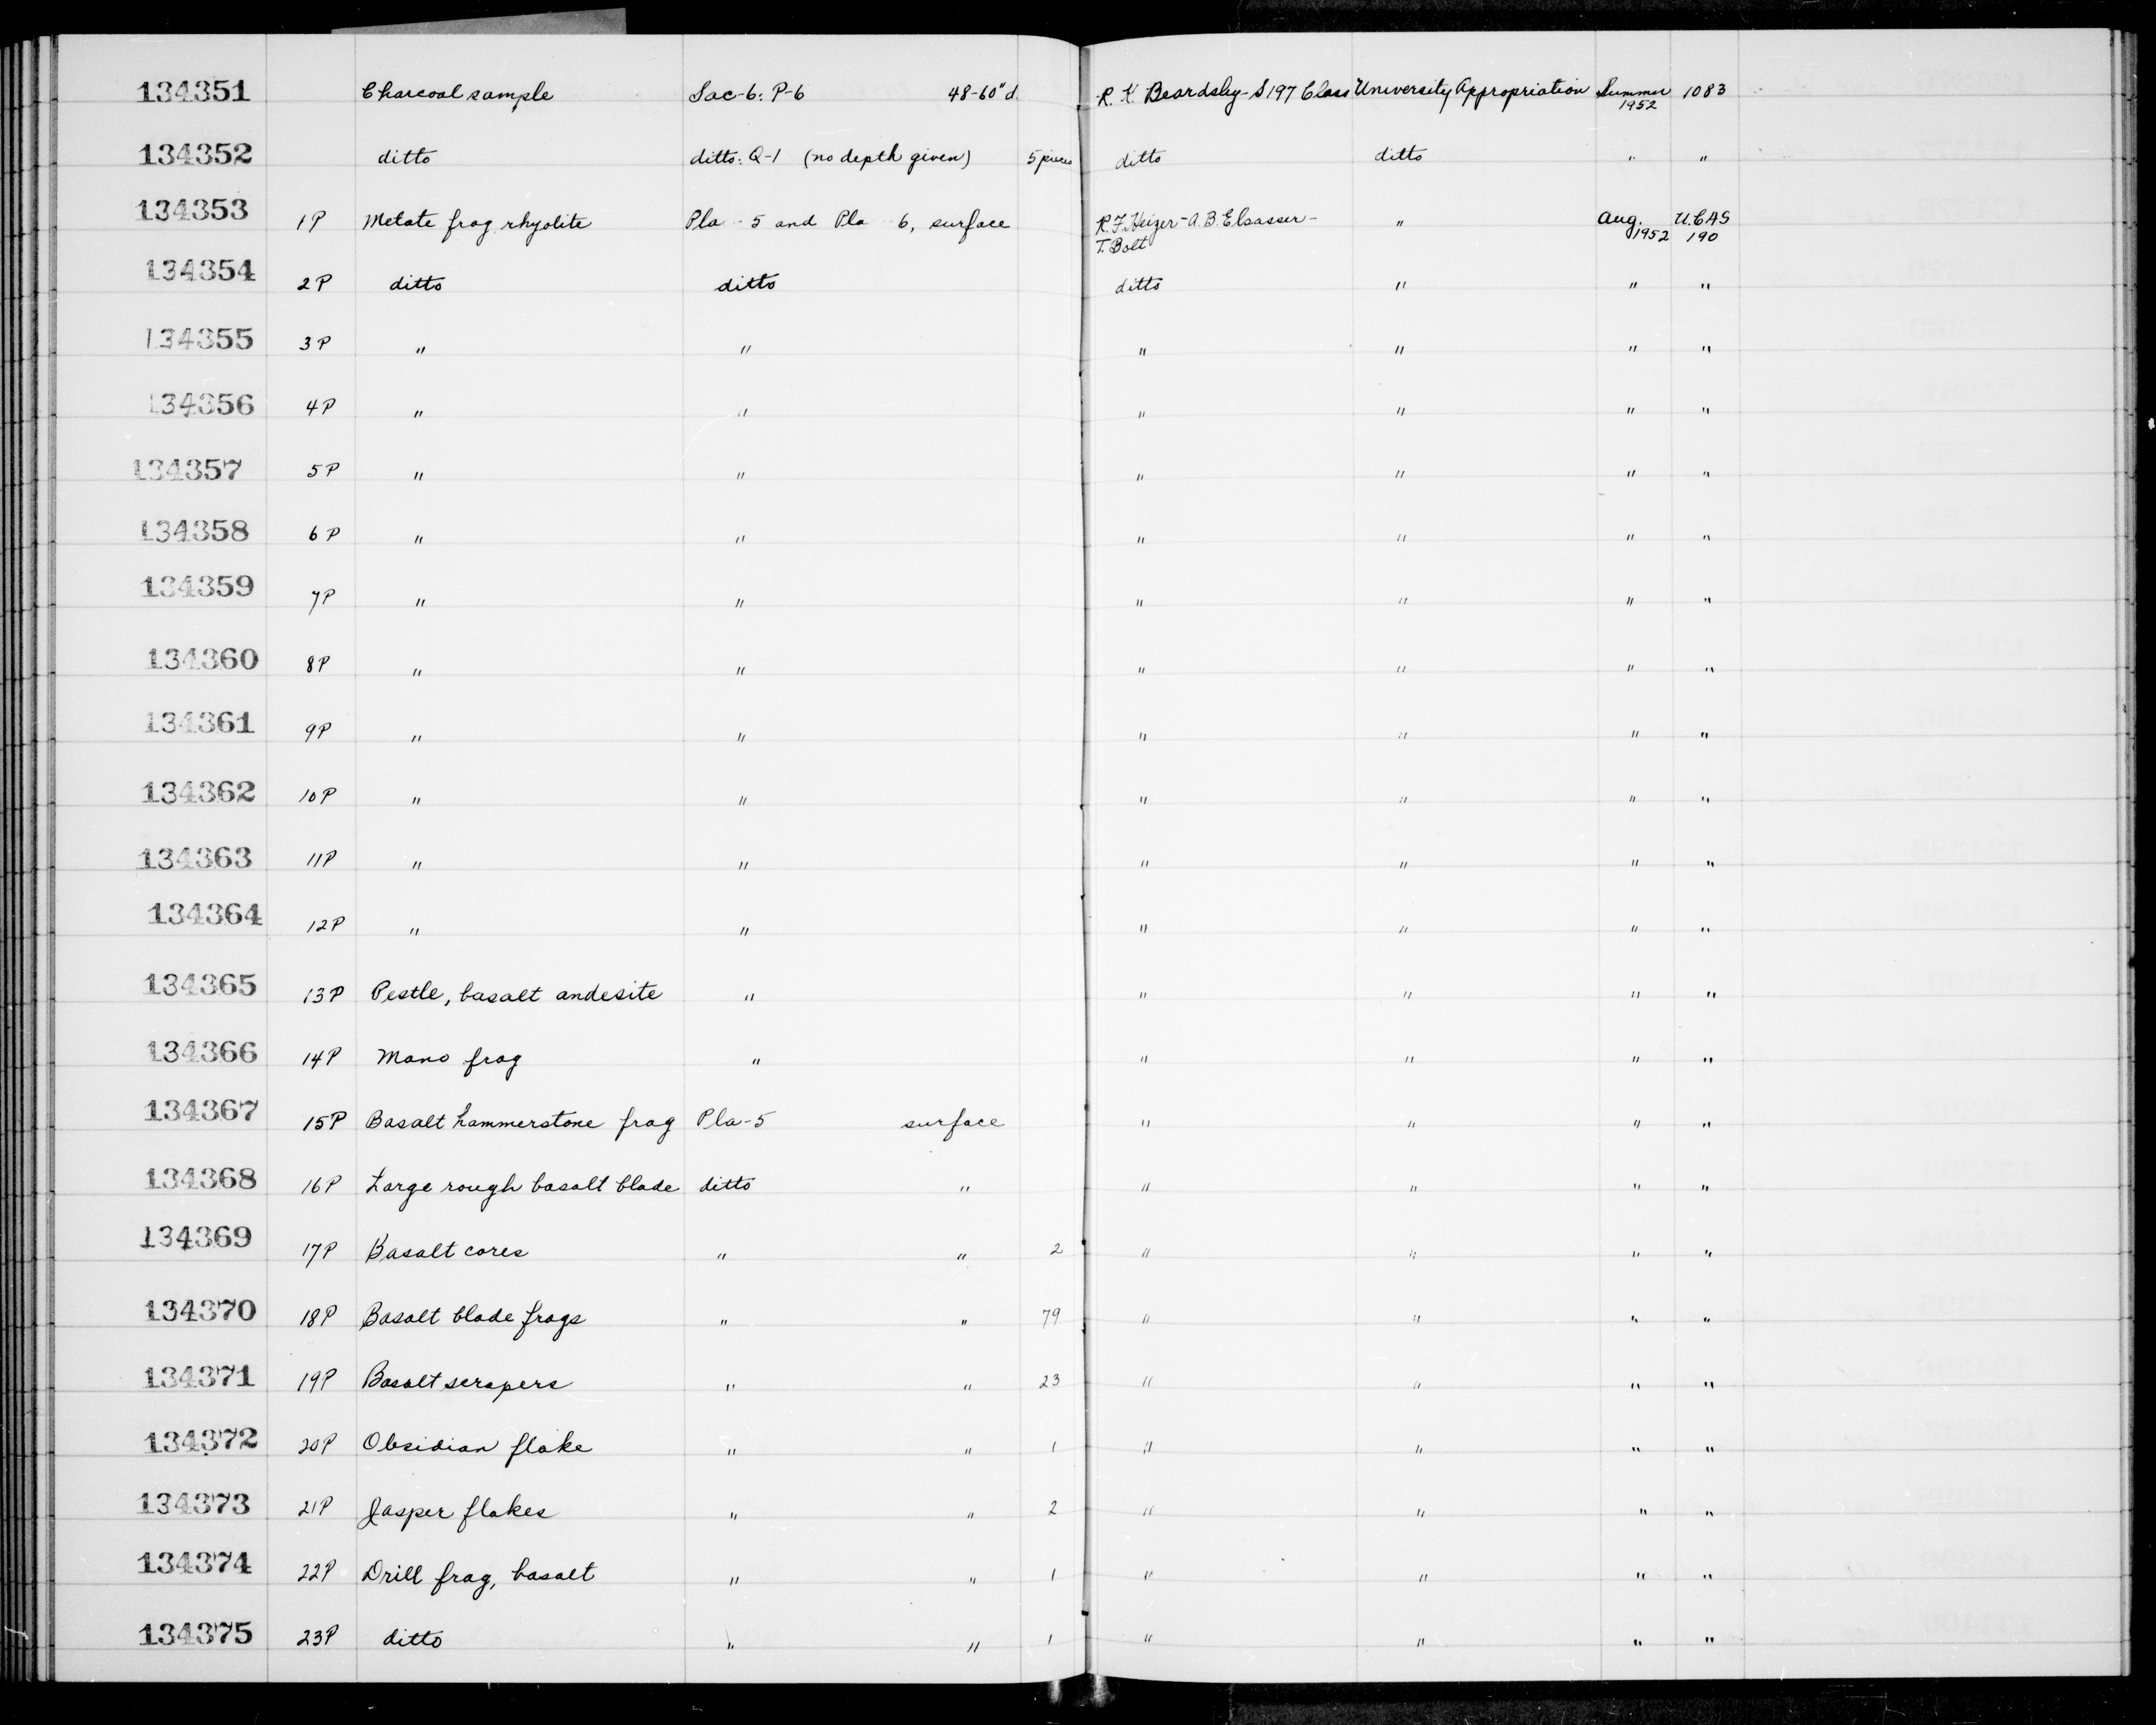 134351 Charcoal sample Sac-6: P-6 48-60" d. R. K. Beardsley-S197 Class University Appropriation Summer 1952 1083
134352 ditto ditto: Q-1 (no depth given) 5 pieces ditto ditto " "
134353 1P Metate frag rhyolite Pla - 5 and Pla 6, surface R.F. Heizer-A.B. Elsasser- T. Bolt " Aug. 1952 U.C.A.S 190
134354 2P ditto ditto ditto " " "
134355 3P " " " " " "
134356 4P " " " " " "
134357 5P " " " " " "
134358 6P " " " " " "
134359 7P " " " " " "
134360 8P " " " " " "
134361 9P " " " " " "
134362 10P " " " " " "
134363 11P " " " " " "
134364 12P " " " " " "
134365 13P Pestle, basalt andesite " " " " "
134366 14P Mano frag " " " " "
134367 15P Basalt hammerstone frag Pla-5 surface " " " "
134368 16P Large rough basalt blade ditto " " " " "
134369 17P Basalt cores " " 2 " " " "
134370 18P Basalt blade frags " " 79 " " " "
134371 19P Basalt scrapers " " 23 " " " "
134372 20P Obsidian flake " " 1 " " " "
134373 21P Jasper flakes " " 2 " " " "
134374 22P Drill frag, basalt " " 1 " " " "
134375 23P ditto " " 1 " " " "